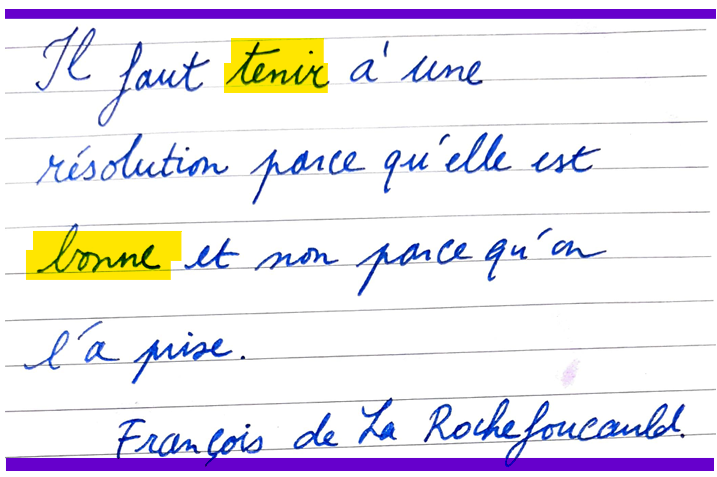 Il faut tenir à une
résolution parce qu'elle est
bonne et non parce qu'on
l'a prise.
François de La Rochefoucauld.